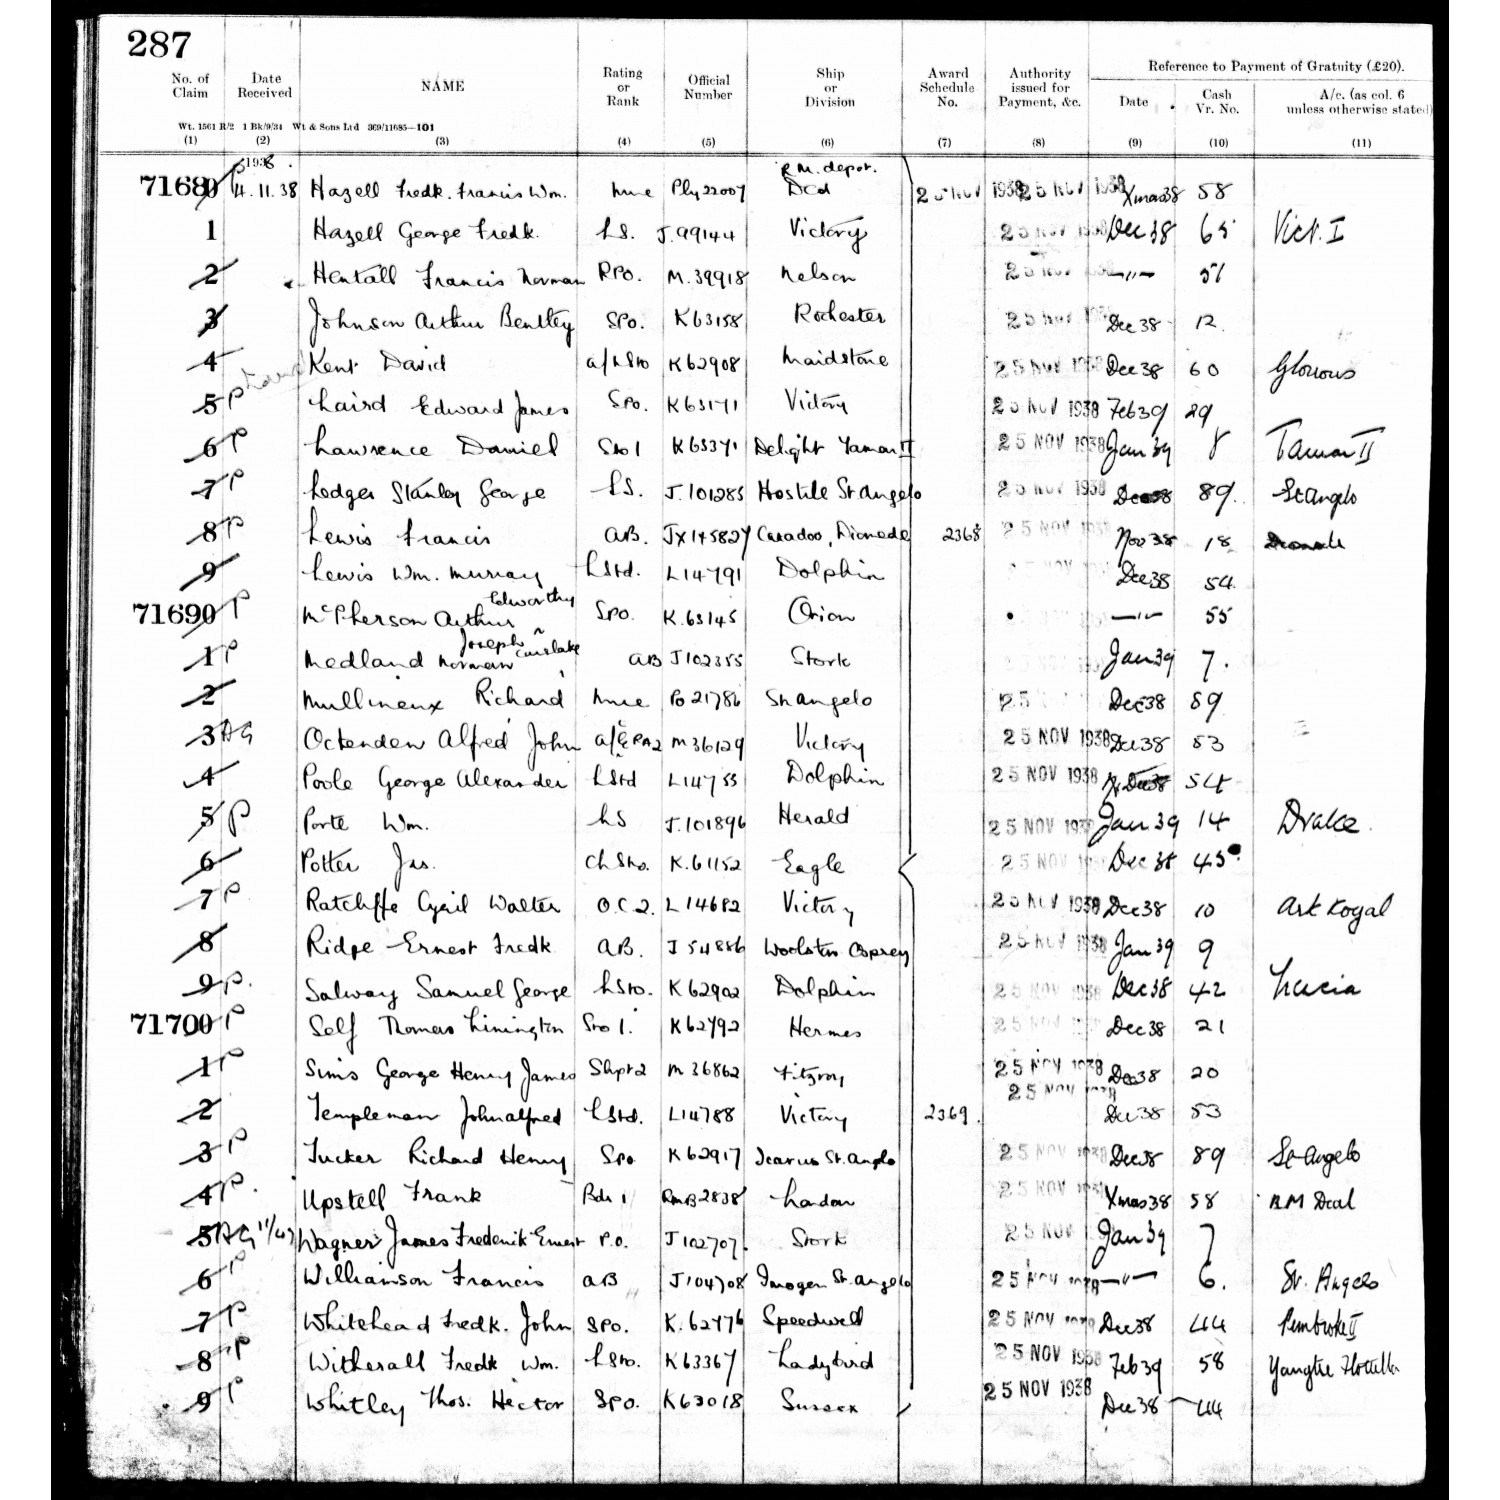 287
No. of Claim | Date Received | NAME | Rating or Rank | Official Number | Ship or Division | Award Schedule No. | Authority issued for Payment, &c. | Reference to Payment of Gratuity (£20).
Date | Cash Vr. No. | A/c. (as col. 6 unless otherwise stated)
Wt. 1561 R/2 1 Bk/9/34 Wt & Sons Ltd 369/11685—101
(1) (2) (3) (4) (5) (6) (7) (8) (9) (10) (11)
1938. R.M. depot.
71680 4.11.38 Hazell Fredk. Francis Wm. Mne Ply 22007 Deal 25 NOV 1938 25 NOV 1938 Xmas 38 58
1 Hazell George Fredk. LS. J.99144 Victory 25 NOV 1938 Dec 38 65 Vict. I
2 Hentall Francis Norman RPO. M.39918 Nelson 25 NOV —"— 51
3 Johnson Arthur Bentley SPO. K63158 Rochester 25 NOV Dec 38 12.
4 Kent David a/LSto K62908 Maidstone 25 NOV 1938 Dec 38 60 Glorious
5 P Laird Edward James SPO. K63171 Victory 25 NOV 1938 Feb 39 29
6 P Lawrence Daniel Sto 1 K63371 Delight Tamar II 25 NOV 1938 Jan 39 8 Tamar II
7 P Ledger Stanley George LS. J.101285 Hostile St Angelo 25 NOV 1938 Dec 38 89. St Angelo
8 P Lewis Francis AB. JX145827 Caradoc, Diomede 2368 25 NOV 1938 Nov 38 18
9 Lewis Wm. Murray LStd. L14791 Dolphin Dec 38 54
71690 P McPherson Arthur Edworthy SPO. K.63145 Orion —"— 55
1 P Medland Norman Joseph Carslake AB J102355 Stork Jan 39 7.
2 Mullineux Richard Mne Po 21786 St Angelo 25 Dec 38 89
3 AG Octenden Alfred John a/ERA2 M36129 Victory 25 NOV 1938 Dec 38 53
4 Poole George Alexander LStd L14755 Dolphin 25 NOV 1938 Dec 38 54
5 P Porte Wm. LS J.101896 Herald 25 NOV 1938 Jan 39 14 Drake.
6 Potter Jas. Ch Sto. K.61152 Eagle 25 NOV Dec 38 45
7 P Ratcliffe Cyril Walter O.C 2. L14682 Victory 25 NOV 1938 Dec 38 10 Ark Royal
8 Ridge Ernest Fredk AB. J54886 Woolston Osprey 25 NOV 1938 Jan 39 9
9 P. Salway Samuel George LSto. K62902 Dolphin 25 NOV 1938 Dec 38 42 Lucia
71700 P Self Thomas Linington Sto 1. K62792 Hermes 25 NOV Dec 38 21
1 P Sims George Henry James Shpt 2 M36862 Fitzroy 25 NOV 1938 Dec 38 20
25 NOV 1938
2 Templeman John Alfred LStd. L14788 Victory 2369. Dec 38 53
3 P Tucker Richard Henry Spo K62917 Icarus St. Angelo 25 NOV 1938 Dec 38 89 St Angelo
4 P. Upstell Frank Bdr 1 RMB 2838 London 25 NOV 1938 Xmas 38 58 RM Deal
5 AG 11/47 Wagner James Frederick Ernest P.O. J102707. Stork 25 NOV Jan 39 7
6 P Williamson Francis AB J104708 Imogen St. Angelo 25 NOV 1938 —"— 6. St. Angelo
7 P Whitehead Fredk. John SPO. K.62476 Speedwell 25 NOV 1938 Dec 38 44 Pembroke II
8 P Witherall Fredk Wm. LSto. K63367 Ladybird 25 NOV 1938 Feb 39 58 Yangtse Flotilla
9 P Whitley Thos. Hector SPO. K63018 Sussex 25 NOV 1938 Dec 38 44